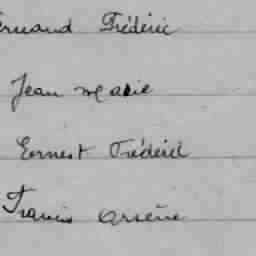 ernand Frédéric
Jean Marie
Ernest Frédéric
Francis Arsène